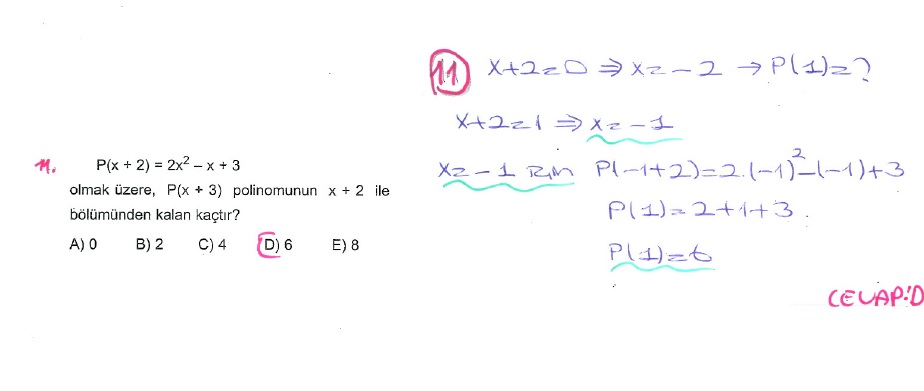 11.
P(x + 2) = 2x² – x + 3
olmak üzere, P(x + 3) polinomunun x + 2 ile
bölümünden kalan kaçtır?
A) 0 B) 2 C) 4 D) 6 E) 8
11 x+2=0 ⇒ x=-2 → P(1)=?
x+2=1 ⇒ x=-1
x=-1 için P(-1+2)=2.(-1)²-(-1)+3
P(1)=2+1+3.
P(1)=6
CEVAP:D